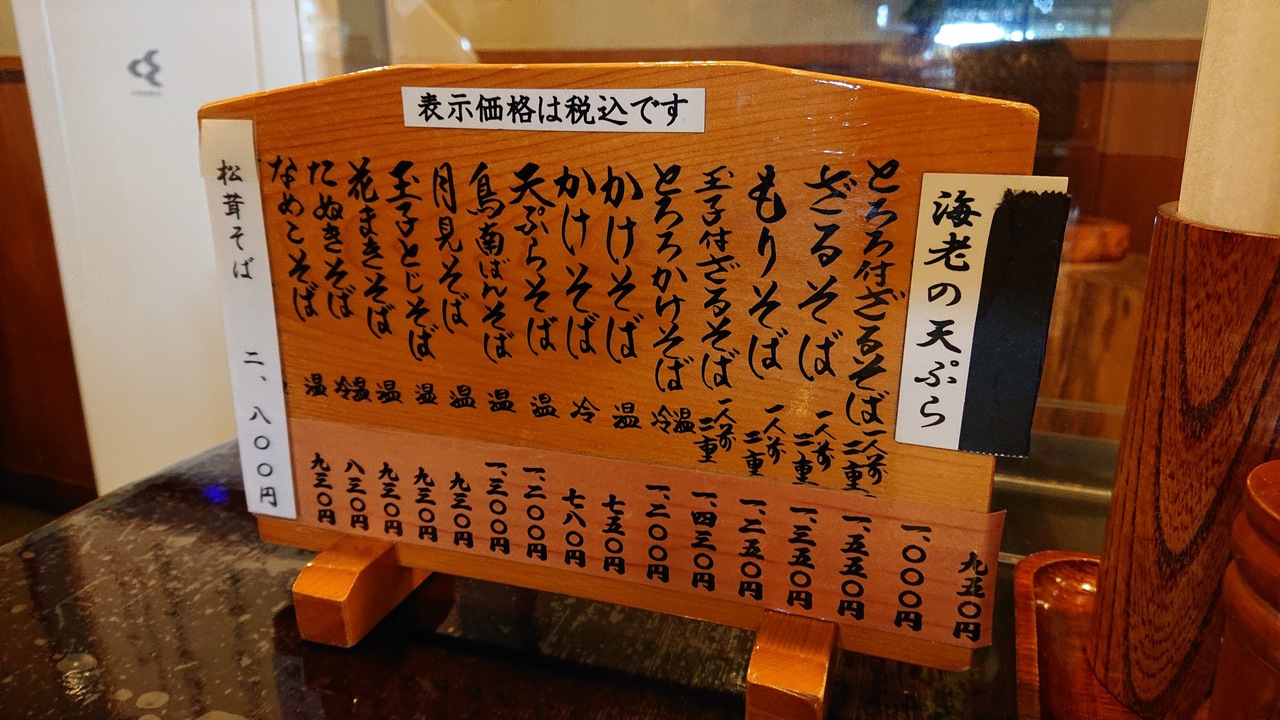 表示価格は税込です
九五〇円
海老の天ぷら 一、〇〇〇円
とろろ付ざるそば 一人前 二重 一、五五〇円
ざるそば 一人前 二重 一、三五〇円
もりそば 一人前 二重 一、二五〇円
玉子付ざるそば 一人前 二重 一、四三〇円
とろろかけそば 温冷 一、二〇〇円
かけそば 温 七五〇円
かけそば 冷 七八〇円
天ぷらそば 温 一、二〇〇円
鳥南ばんそば 温 一、三〇〇円
月見そば 温 九三〇円
玉子とじそば 温 九三〇円
花まきそば 温 九三〇円
たぬきそば 温冷 八三〇円
なめこそば 温 九三〇円
松茸そば 二、八〇〇円